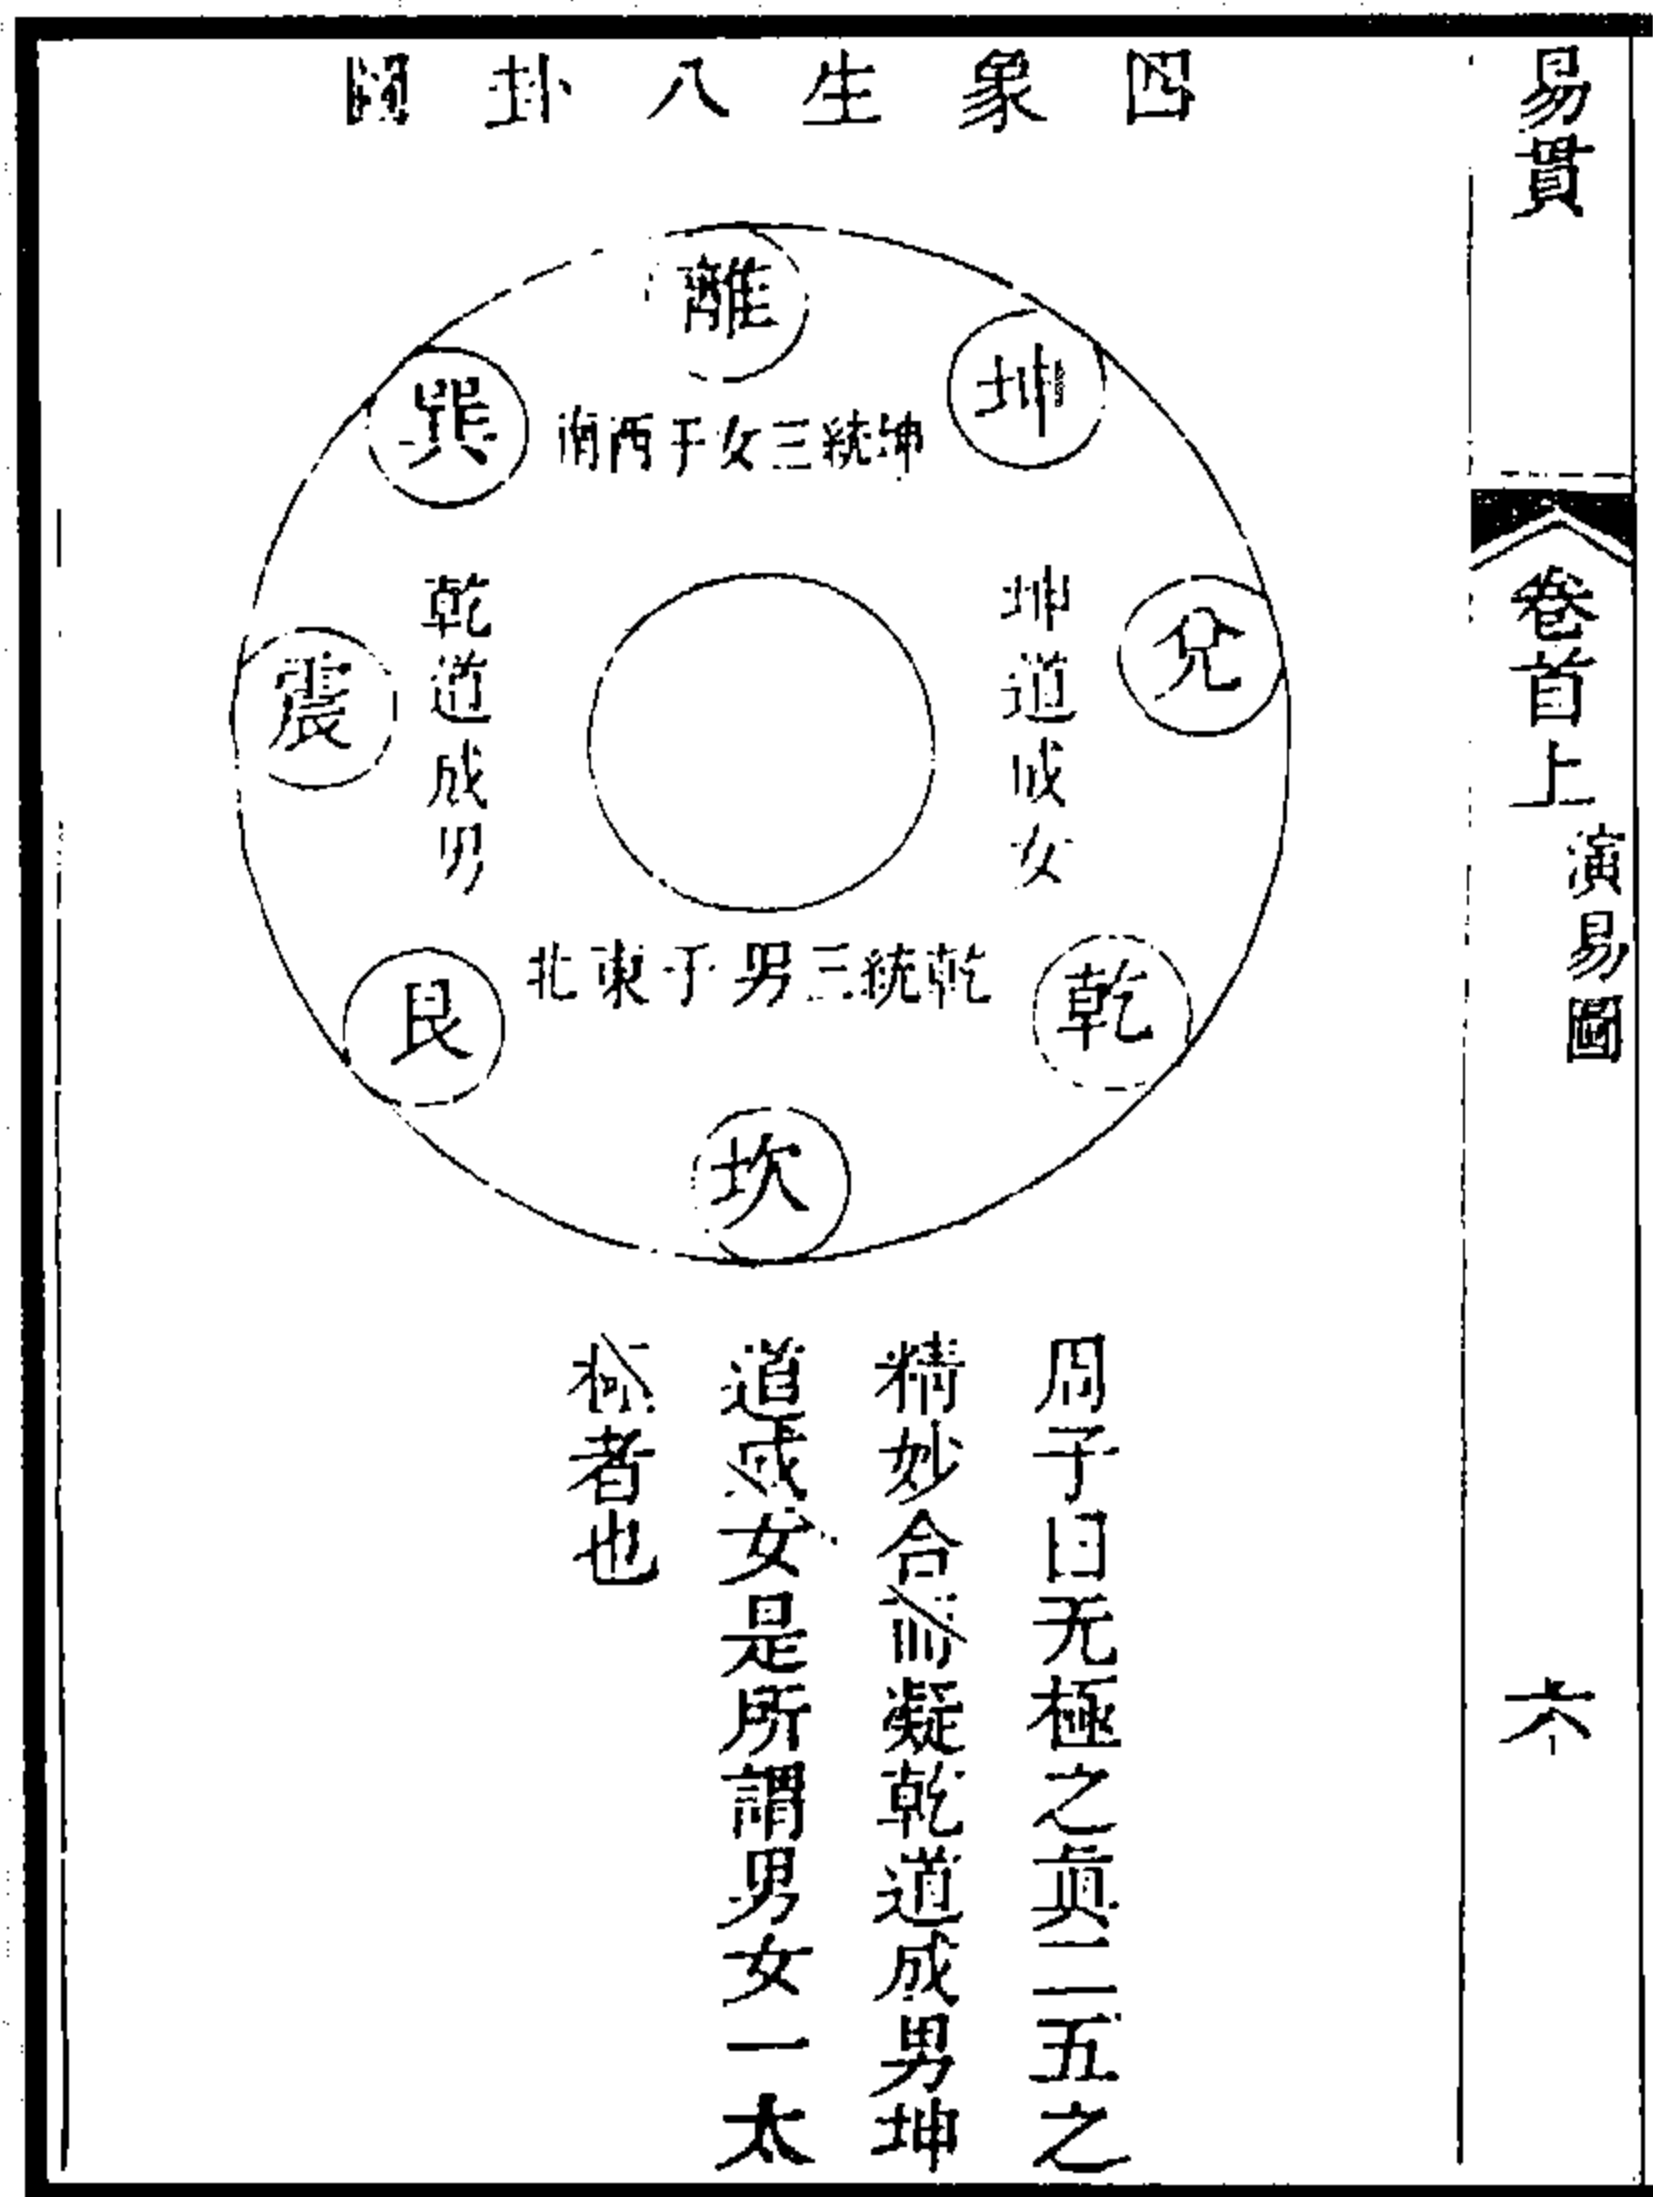 易貫
卷首上
演易圖
六
四象生八卦圖
離
坤
兌
乾
坎
艮
震
巽
坤統三女于西南
坤道成女
乾統三男于東北
乾道成男
周子曰无極之眞二五之
精妙合而凝乾道成男坤
道成女是所謂男女一太
極者也